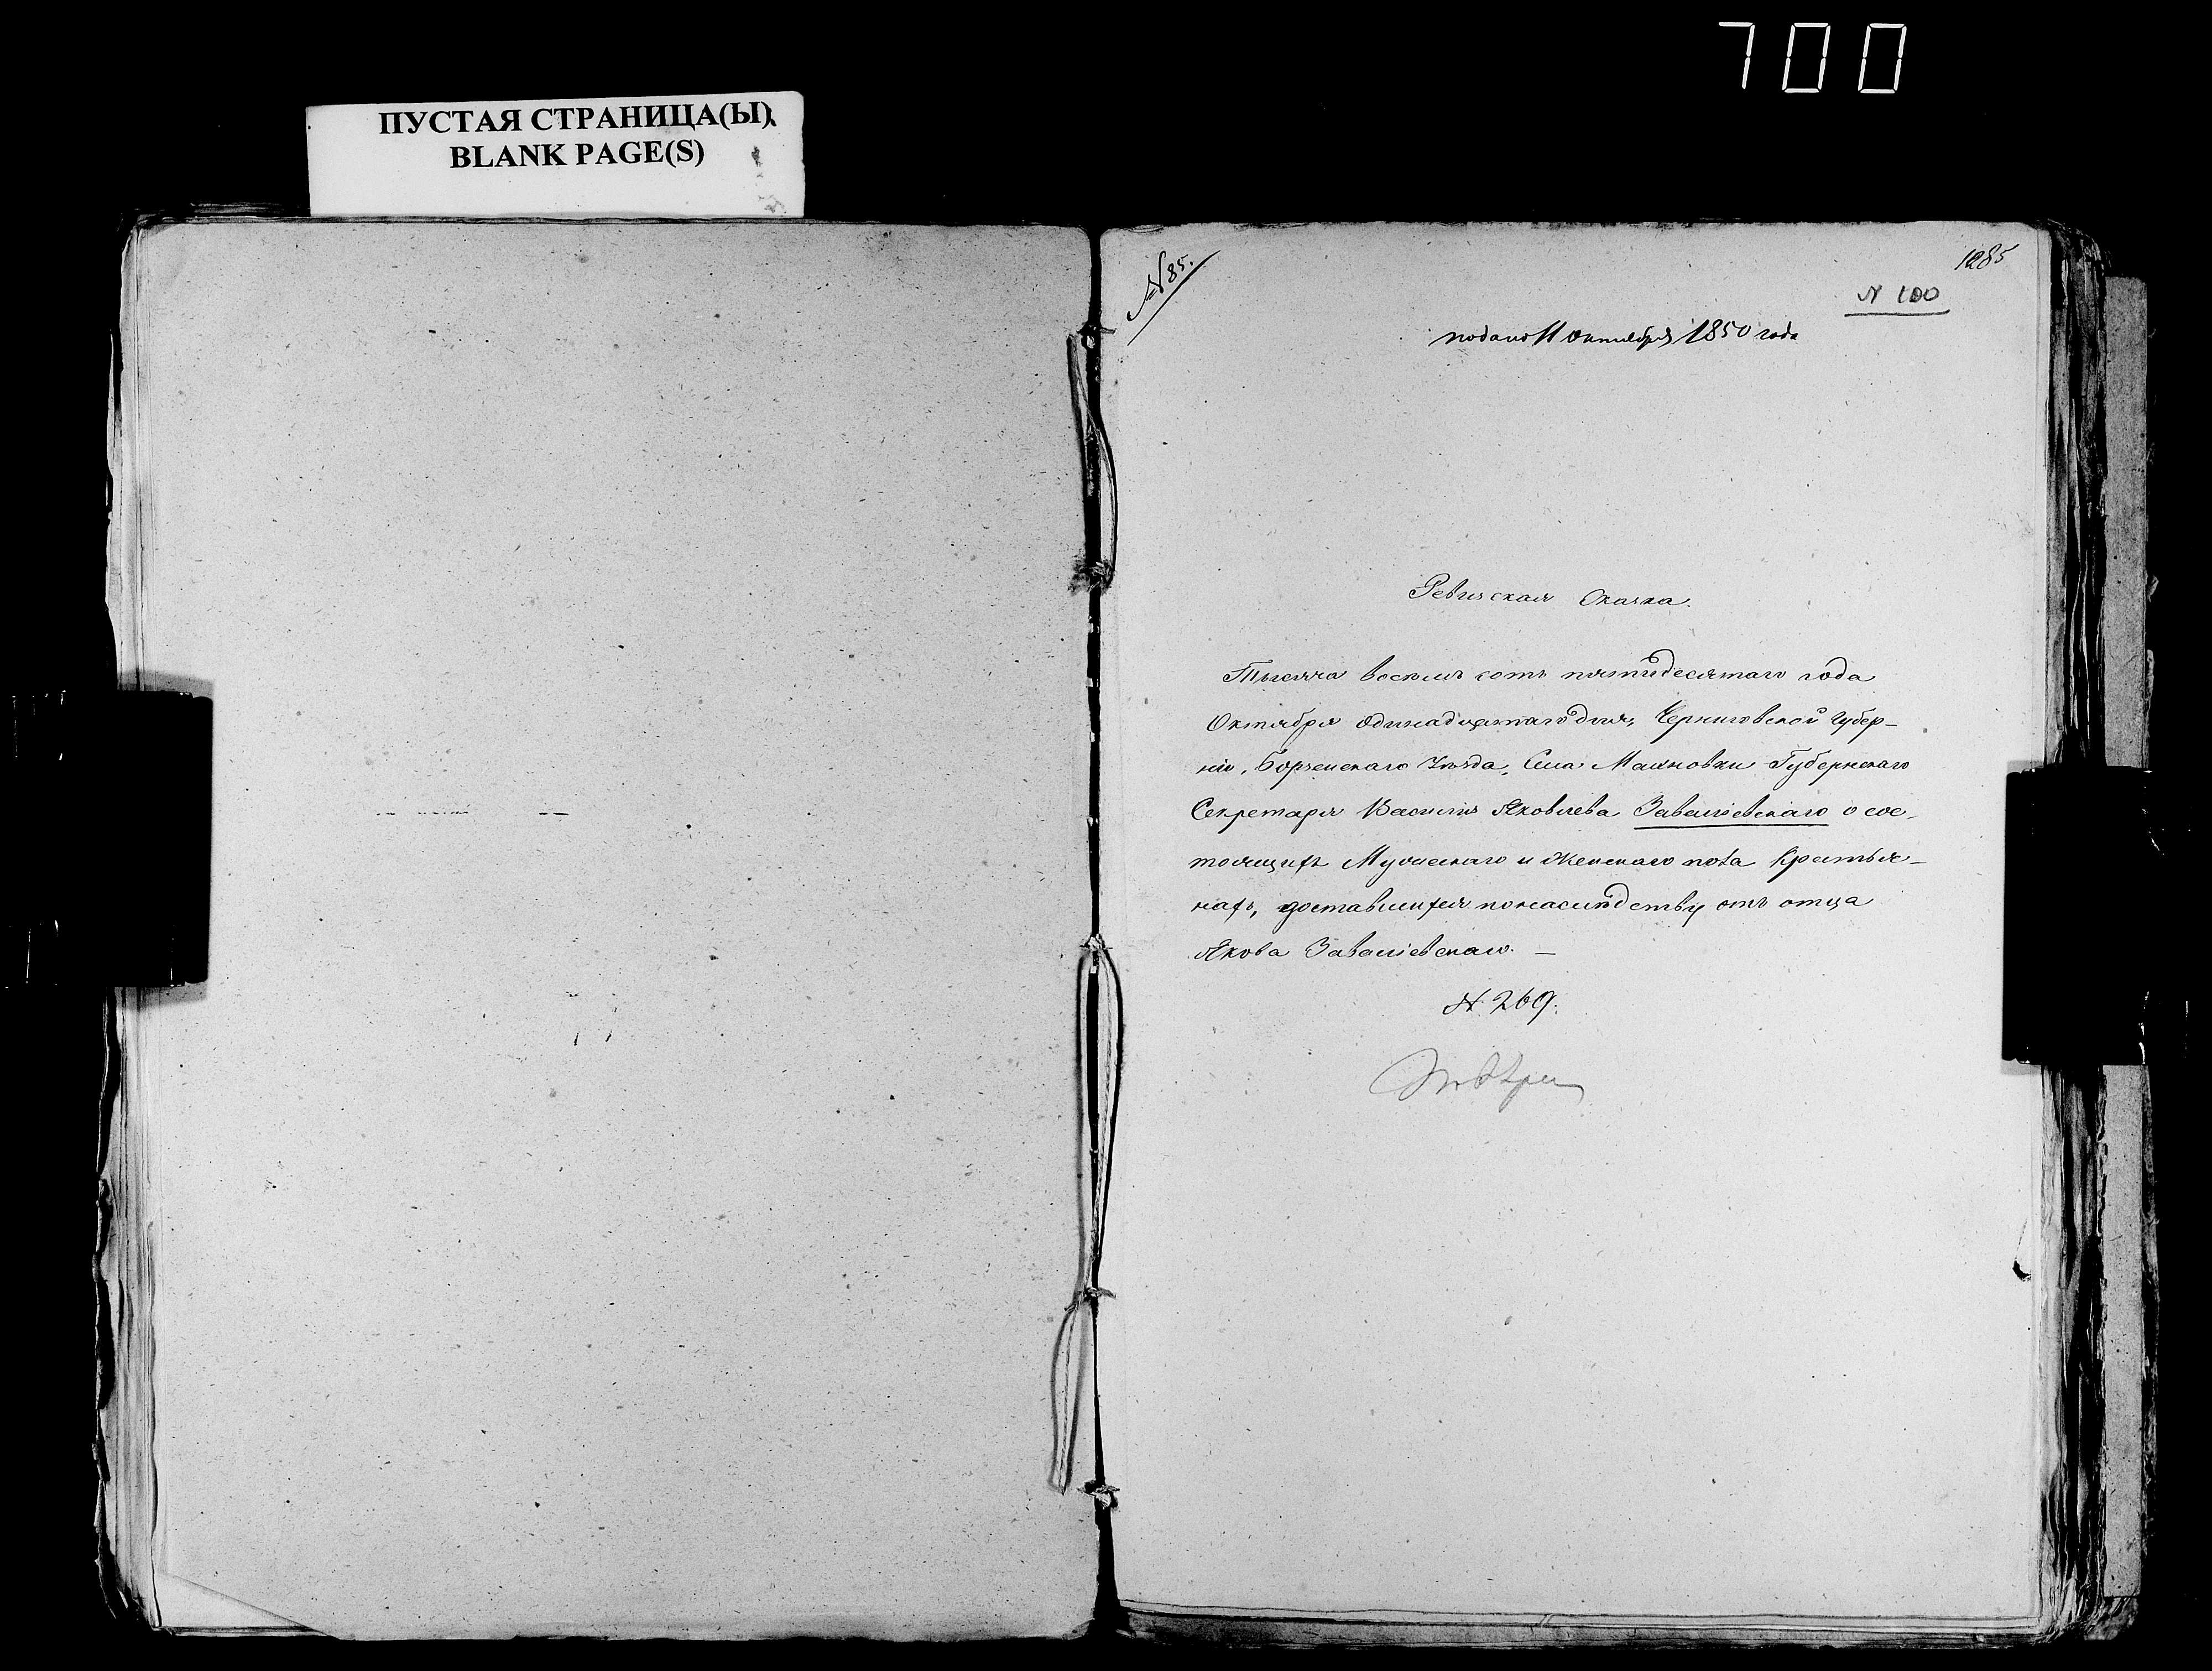 700
ПУСТАЯ СТРАНИЦА(Ы)
BLANK PAGE(S)
№ 85.
1285
№ 100
подано 11 октября 1850 года
Ревизская Сказка.
Тысяча восемь сотъ пятидесятаго года
Октября одинадцатаго дня, Черниговской Губер-
ніи, Борзенскаго Уѣзда, Села Малиновки Губернскаго
Секретаря Василія Яковлева Завалiевскаго о сос-
тоящихъ Мужескаго и Женскаго пола Крестья-
нахъ, доставшихся по наслѣдству отъ отца
Якова Завалiевскаго. —
№ 269.